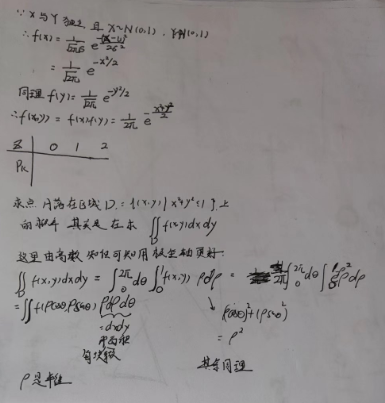 ∵ X 与 Y 独立 且 X~N(0,1) , Y~N(0,1)
∴ f(x) =
= 1/√2π e^{-x²/2}
同理 f(y) = 1/√2π e^{-y²/2}
∴ f(x,y) = f(x)f(y) = 1/2π e^{-(x²+y²)/2}
Z 0 1 2
Pk
求点 落在区域 D: {(x,y) | x²+y²≤1} 上
的概率 其实是在求 ∬_D f(x,y)dxdy
这里由高数 知识可知用极坐标更好.
∬_D f(x,y)dxdy = ∫_0^{2π} dθ ∫_0^1 f(x,y) ρdρ = 1/2π ∫_0^{2π} dθ
= ∬ f(ρcosθ, ρsinθ) ρdρdθ (ρcosθ)²+(ρsinθ)²
= dxdy = ρ²
ρ是半径 其余同理